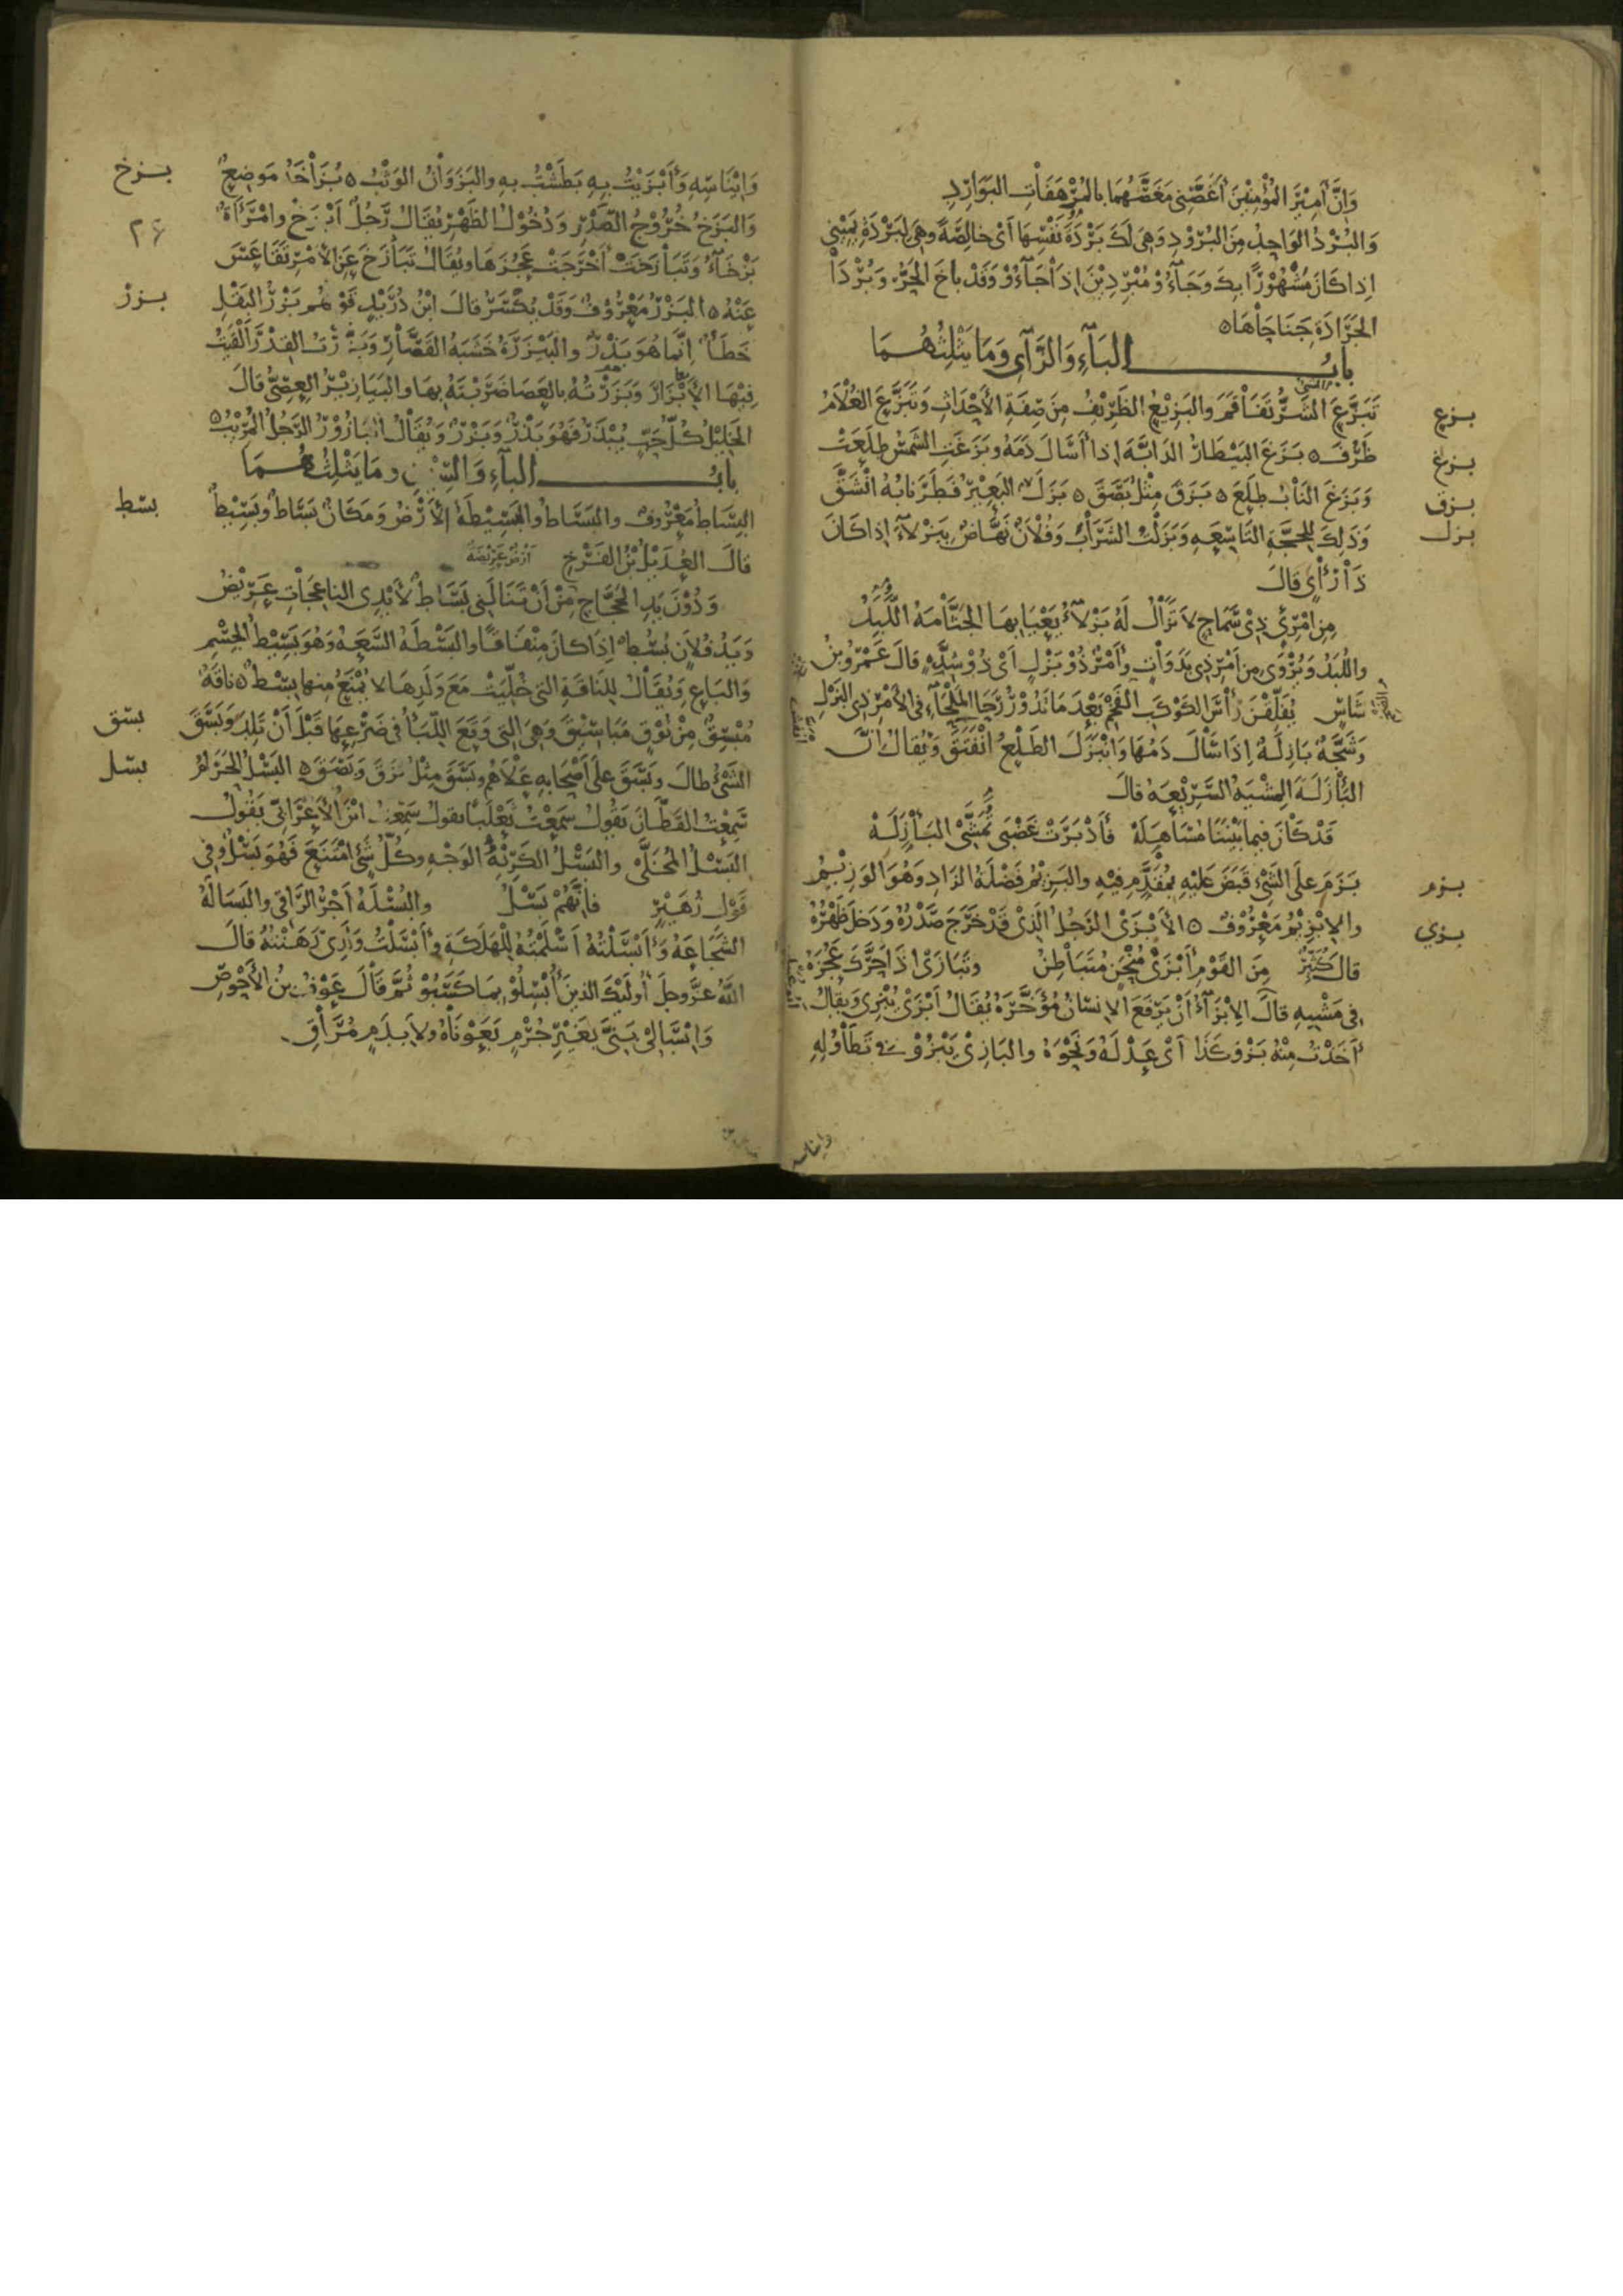 وَإِنَّ أَمِيْرَ المُؤْمِنِيْنَ أَغَصَّنِى مَغَصَّهُمَا بالمُرْهَفَاتِ البَوَارِدِ
وَالبُرْدُ الوَاحِدُ مِنَ البُرُوْدِ وَهِىَ لَكَ بَرْدَةُ نَفْسِهَا أَىْ خَالِصَةً وهِىَ لِبَرْدَةِ يَمِيْنِى
اِذا كَانَ مَشْهُوْرًا بِكَ وَجَاءُوْ مُبْرِدِيْنَ اِذَا جَاءُوْ وَقَدْ باخَ الحَرُّ وَبُرْدَا
الجَرَادَةِ جَنَاحَاهَا ٥
بابُ البَآءِ وَالزَّآىِ وَمَا يَثْلِثُهُمَا
بزع
تَبَزَّعَ الشَّرُّ تَفَاقَمَ والبَزِيْعُ الظَّرِيْفُ مِنْ صِفَةِ الأَحْدَاثِ وَتَبَزَّعَ الغُلَامُ
بزغ
ظَرُفَ ٥ بَزَغَ البَيْطَارُ الدَابَّةَ اِذا أَسَالَ دَمَهُ وبَزَغَتِ الشَّمْسُ طَلَعَتْ
بزق
وَبَزَغَ النَابُ طَلَعَ ٥ بَزَقَ مِثْلُ بَصَقَ ٥ بَزَلَ البَعِيْرُ فَطَرَ نَابُهُ انْشَقَّ
بزل
وَذَلِكَ لِحِجَّتِهِ التَاسِعَةِ وَبَزَلْتُ الشَّرَابَ وَفُلَانٌ نَهَّاضٌ بِبَزْلَآءَ اِذا كَانَ
ذَا رَأْىٍ قَالَ
مِنِ امْرِئٍ ذِى سَمَاحٍ لا تَزَالُ لَهُ بَزْلَآءُ يَعْيَا بِهَا الجَثَّامَةُ اللُّبَدُ
واللَّبِدُ وَيُرْوَى مِنْ أَمْرِ ذِى بَدَوَاتٍ وأَمْرٌ ذُوْ بَزْلٍ أَىْ ذُوْ شِدَّةٍ قَالَ عَمْرُو بنُ
شَاسٍ يُفَلِّقْنَ رَأْسَ الكَوْكَبِ الفَخْمِ بَعْدَمَا تَدُوْرُ رَحَا المَلْحَاءِ فى الأَمْرِ ذِى البَزْلِ
وَشَجَّةٌ بَازِلَةٌ اِذَا سَالَ دَمُهَا وَانْبَزَلَ الطَلْعُ انْفَتَقَ وَيُقَالُ اِنَّ
البَأْزَلَةَ المِشْيَةُ السَّرِيْعَةُ قالَ
قَدْ كَانَ فِيما بَيْنَنَا مُشَاهَلَهْ فَأَدْبَرَتْ غَضْبَى تَمَشَّى البَأْزَلَهْ
بزم
بَزَمَ عَلَى الشَّىْءِ قَبَضَ عَلَيْهِ بِمُقَدَّمِ فِيْهِ والبَزِيْمُ فَضْلَةُ الزَادِ وَهُوَ الوَزِيْمُ
بزى
والاِبْزِيْمُ مَعْرُوْفٌ ٥ الأَبْزَى الرَّجُلُ الَّذِىْ قَدْ خَرَجَ صَدْرُهُ وَدَخَلَ ظَهْرُهُ
قَالَ كُثَيِّرٌ مِنَ القَوْمِ أَبْزَى مُنْحَنٍ مُتَبَاطِنُ وتَبَازَى اِذَا حَرَّكَ عَجُزَهُ
فى مَشْيِهِ قَالَ الاِبْزَاءُ أَنْ يَرْفَعَ الاِنْسَانُ مُؤَخَّرَهُ يُقَالُ أَبْزَى يُبْزِى وَيُقَالُ
أَخَذْتُ مِنْهُ بَزْوَ كَذَا أَىْ عِدْلَهُ وَنَحْوَهُ والبَازِىْ يَبْزُوْ فى تَطَاوُلِهِ
وايناسه
بزخ
وَاِيْنَاسِهِ وَأَبْزَيْتُ بِهِ بَطَشْتُ بِهِ والبَزَوَانُ الوَثْبُ ٥ بُزَاخَةُ مَوضِعٌ
٢۶
وَالبَزَخُ خُرُوْجُ الصَّدْرِ وَدُخُوْلُ الظَهْرِ يُقَالُ رَجُلٌ أَبْزَخُ وامْرَأَةٌ
بَزْخَآءُ وَتَبَازَخَتْ أَخْرَجَتْ عَجُزَهَا ويُقَالُ تَبَازَخَ عَنِ الأَمْرِ تَقَاعَسَ
بزر
عَنْهُ ٥ البَزْرُ مَعْرُوْفٌ وَقَدْ يُكْسَرُ قالَ ابْنُ دُرَيْدٍ قَوْلهم بَزْرُ البَقْلِ
خَطَأٌ اِنَّمَا هُوَ بَذْرٌ والبَيْزَرَةُ خَشَبَةُ القَصَّارِ وَبَزَّرْتُ القِدْرَ أَلْقَيْتُ
فِيْهَا الأَبْزَارَ وَبَزَرْتُهُ بِالعَصَا ضَرَبْتُهُ بِهَا والبَيَازِيْرُ العِصِىُّ قَالَ
الخَلِيْلُ كُلُّ حَبٍّ يُبْذَرُ فَهُوَ بَذْرٌ وَبَزْرٌ وَيُقَالُ البَازُوْرُ الرَّجُلُ المُرِيْبُ ٥
بابُ البَآءِ وَالسِّيْنِ ومَا يَثْلِثُهُمَا
بسط
البِسَاطُ مَعْرُوْفٌ والبَسَاطُ والبَسِيْطَةُ الأَرْضُ وَمَكَانٌ بَسَاطٌ وبَسِيْطٌ
قَالَ العُدَيْلُ بْنُ الفَرْخِ
أرْضٌ عَرِيْضَةٌ
وَدُوْنَ يَدِ الحَجَّاجِ مِنْ أَنْ تَنَالَنِى بَسَاطٌ لأَيْدِى النَاعِجَاتِ عَرِيْضُ
وَيَدُ فُلَانٍ بُسُطٌ اِذَا كَانَ مِنْفَاقًا والبَسْطَةُ السَّعَةُ وَهُوَ بَسِيْطُ الجِسْمِ
وَالبَاعِ وَيُقَالُ للِنَاقَةِ التِى خُلِّيَتْ مَعَ وَلَدِهَا لا يُمْنَعُ منها بِسْطٌ ٥ نَاقَةٌ
بسق
مُبْسِقٌ مِنْ نُوْقٍ مَبَاسِيْقَ وَهِىَ التِى وَقَعَ اللِّبَأُ فى ضَرْعِهَا قَبْلَ أَنْ تَلِدَ وَبَسَقَ
بسل
الشَىْءُ طالَ وبَسَقَ عَلَى أَصْحَابِهِ عَلَاهُم وبَسَقَ مِثْلُ بَزَقَ وَبَصَقَ ٥ البَسْلُ الحَرَامُ
سَمِعْتُ القَطَّانَ يَقُوْلُ سَمِعْتُ ثَعْلَبًا يَقولُ سَمِعْتُ ابْنَ الأَعْرَابِىِّ يَقُولُ
البَسْلُ المُخَلَّى والبَسْلُ الكَرِيْهُ الوَجْهِ وكُلُّ شَئٍ امْتَنَعَ فَهُوَ بَسْلٌ وفى
قَوْلِ زُهَيْرٍ فَاِنَّهُمُ بَسْلُ والبُسْلَةُ أَجْرُ الرَّاقِى والبَسَالَةُ
الشَّجَاعَةُ وَأَبْسَلْتُهُ أَسْلَمْتُهُ لِلْهَلَكَةِ وأَبْسَلْتُ وَلَدِىْ رَهَنْتُهُ قَالَ
اللهُ عزَّ وجلَ أُولَئِكَ الذِيْنَ أُبْسِلُوْ بِمَا كَسَبُوْ ثُمَّ قَالَ عَوْفُ بنُ الأَحْوَصِ
وَاِبْسَالِىْ بَنِىَّ بِغَيْرِ جُرْمٍ بَعَوْنَاهُ ولا بِدَمٍ مُرَاقِ.